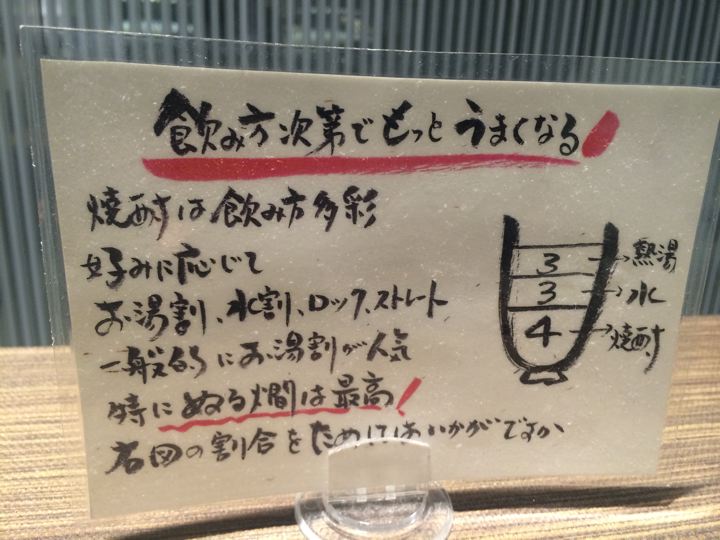 飲み方次第でもっとうまくなる!
焼酎は飲み方多彩
好みに応じて
お湯割、水割、ロック、ストレート
一般的にお湯割が人気
特にぬる燗は最高!
右図の割合をためてはいかがですか
3→熱湯
3→水
4→焼酎